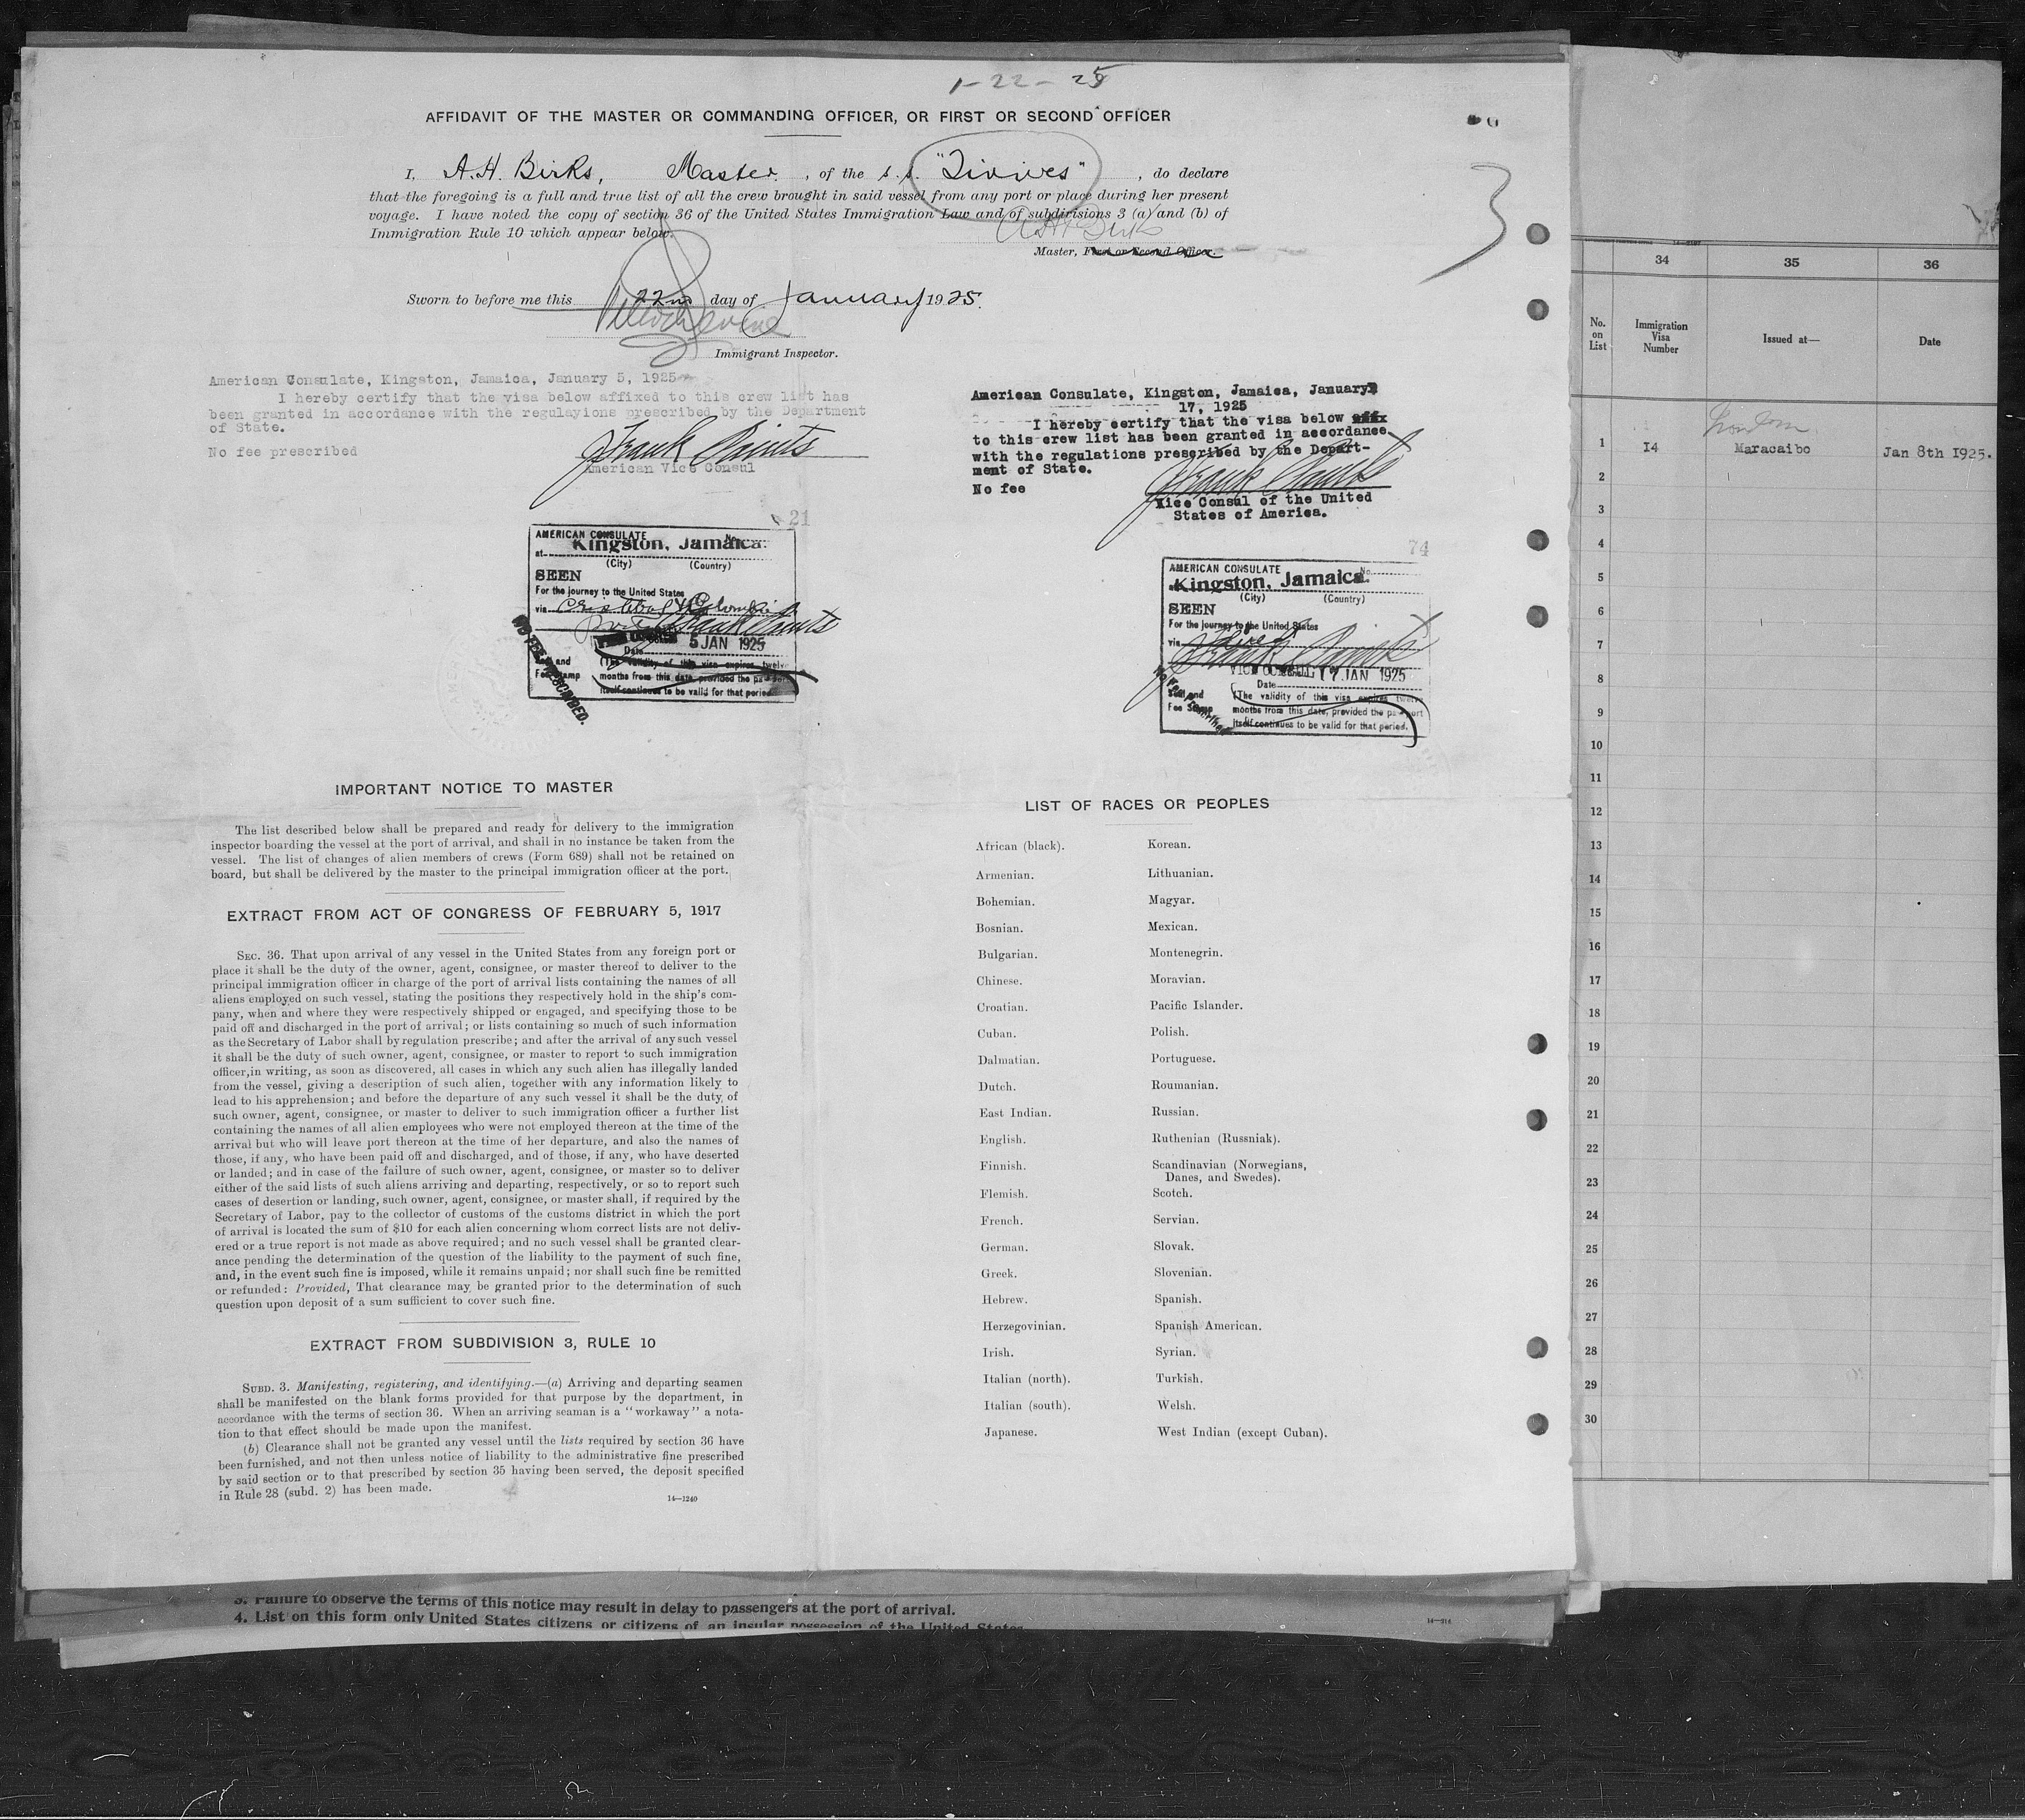 1-22-25
AFFIDAVIT OF THE MASTER OR COMMANDING OFFICER, OR FIRST OR SECOND OFFICER
I, A.H. Birks, Master, of the s.s. "Tivives", do declare
that the foregoing is a full and true list of all the crew brought in said vessel from any port or place during her present
voyage. I have noted the copy of section 36 of the United States Immigration Law and of subdivisions 3 (a) and (b) of
Immigration Rule 10 which appear below.
A H Birks
Master, First or Second Officer.
3
Sworn to before me this 22nd day of January 1925.
Immigrant Inspector.
American Consulate, Kingston, Jamaica, January 5, 1925
I hereby certify that the visa below affixed to this crew list has
been granted in accordance with the regulayions prescribed by the Department
of State.
No fee prescribed
American Vice Consul
21
AMERICAN CONSULATE
at Kingston, Jamaica. No.
(City) (Country)
SEEN
For the journey to the United States
via
5 JAN 1925
Date
Seal and
Fee Stamp
(The validity of this visa expires twelve
months from this date, provided the passport
itself continues to be valid for that period.
NO FEE PRESCRIBED.
American Consulate, Kingston, Jamaica, January
17, 1925
I hereby certify that the visa below affix
to this crew list has been granted in accordance
with the regulations prescribed by the Depart-
ment of State.
No fee
Vice Consul of the United
States of America.
74
AMERICAN CONSULATE
at Kingston, Jamaica. No.
(City) (Country)
SEEN
For the journey to the United States
via
VICE CONSUL 17 JAN 1925
Date
Seal and
Fee Stamp
(The validity of this visa expires twelve
months from this date, provided the passport
itself continues to be valid for that period.
IMPORTANT NOTICE TO MASTER
The list described below shall be prepared and ready for delivery to the immigration
inspector boarding the vessel at the port of arrival, and shall in no instance be taken from the
vessel. The list of changes of alien members of crews (Form 689) shall not be retained on
board, but shall be delivered by the master to the principal immigration officer at the port.
EXTRACT FROM ACT OF CONGRESS OF FEBRUARY 5, 1917
SEC. 36. That upon arrival of any vessel in the United States from any foreign port or
place it shall be the duty of the owner, agent, consignee, or master thereof to deliver to the
principal immigration officer in charge of the port of arrival lists containing the names of all
aliens employed on such vessel, stating the positions they respectively hold in the ship's com-
pany, when and where they were respectively shipped or engaged, and specifying those to be
paid off and discharged in the port of arrival; or lists containing so much of such information
as the Secretary of Labor shall by regulation prescribe; and after the arrival of any such vessel
it shall be the duty of such owner, agent, consignee, or master to report to such immigration
officer, in writing, as soon as discovered, all cases in which any such alien has illegally landed
from the vessel, giving a description of such alien, together with any information likely to
lead to his apprehension; and before the departure of any such vessel it shall be the duty of
such owner, agent, consignee, or master to deliver to such immigration officer a further list
containing the names of all alien employees who were not employed thereon at the time of the
arrival but who will leave port thereon at the time of her departure, and also the names of
those, if any, who have been paid off and discharged, and of those, if any, who have deserted
or landed; and in case of the failure of such owner, agent, consignee, or master so to deliver
either of the said lists of such aliens arriving and departing, respectively, or so to report such
cases of desertion or landing, such owner, agent, consignee, or master shall, if required by the
Secretary of Labor, pay to the collector of customs of the customs district in which the port
of arrival is located the sum of $10 for each alien concerning whom correct lists are not deliv-
ered or a true report is not made as above required; and no such vessel shall be granted clear-
ance pending the determination of the question of the liability to the payment of such fine,
and, in the event such fine is imposed, while it remains unpaid; nor shall such fine be remitted
or refunded: Provided, That clearance may be granted prior to the determination of such
question upon deposit of a sum sufficient to cover such fine.
EXTRACT FROM SUBDIVISION 3, RULE 10
SUBD. 3. Manifesting, registering, and identifying.—(a) Arriving and departing seamen
shall be manifested on the blank forms provided for that purpose by the department, in
accordance with the terms of section 36. When an arriving seaman is a "workaway" a nota-
tion to that effect should be made upon the manifest.
(b) Clearance shall not be granted any vessel until the lists required by section 36 have
been furnished, and not then unless notice of liability to the administrative fine prescribed
by said section or to that prescribed by section 35 having been served, the deposit specified
in Rule 28 (subd. 2) has been made.
14—1240
LIST OF RACES OR PEOPLES
African (black). Korean.
Armenian. Lithuanian.
Bohemian. Magyar.
Bosnian. Mexican.
Bulgarian. Montenegrin.
Chinese. Moravian.
Croatian. Pacific Islander.
Cuban. Polish.
Dalmatian. Portuguese.
Dutch. Roumanian.
East Indian. Russian.
English. Ruthenian (Russniak).
Finnish. Scandinavian (Norwegians,
Danes, and Swedes).
Flemish. Scotch.
French. Servian.
German. Slovak.
Greek. Slovenian.
Hebrew. Spanish.
Herzegovinian. Spanish American.
Irish. Syrian.
Italian (north). Turkish.
Italian (south). Welsh.
Japanese. West Indian (except Cuban).
3. Failure to observe the terms of this notice may result in delay to passengers at the port of arrival.
4. List on this form only United States citizens or citizens of an insular possession of the United States
14—214
34 35 36
No. on List Immigration Visa Number Issued at— Date
1 14 Maracaibo Jan 8th 1925.
2
3
4
5
6
7
8
9
10
11
12
13
14
15
16
17
18
19
20
21
22
23
24
25
26
27
28
29
30